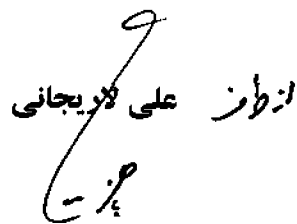 از طرف علی لاریجانی